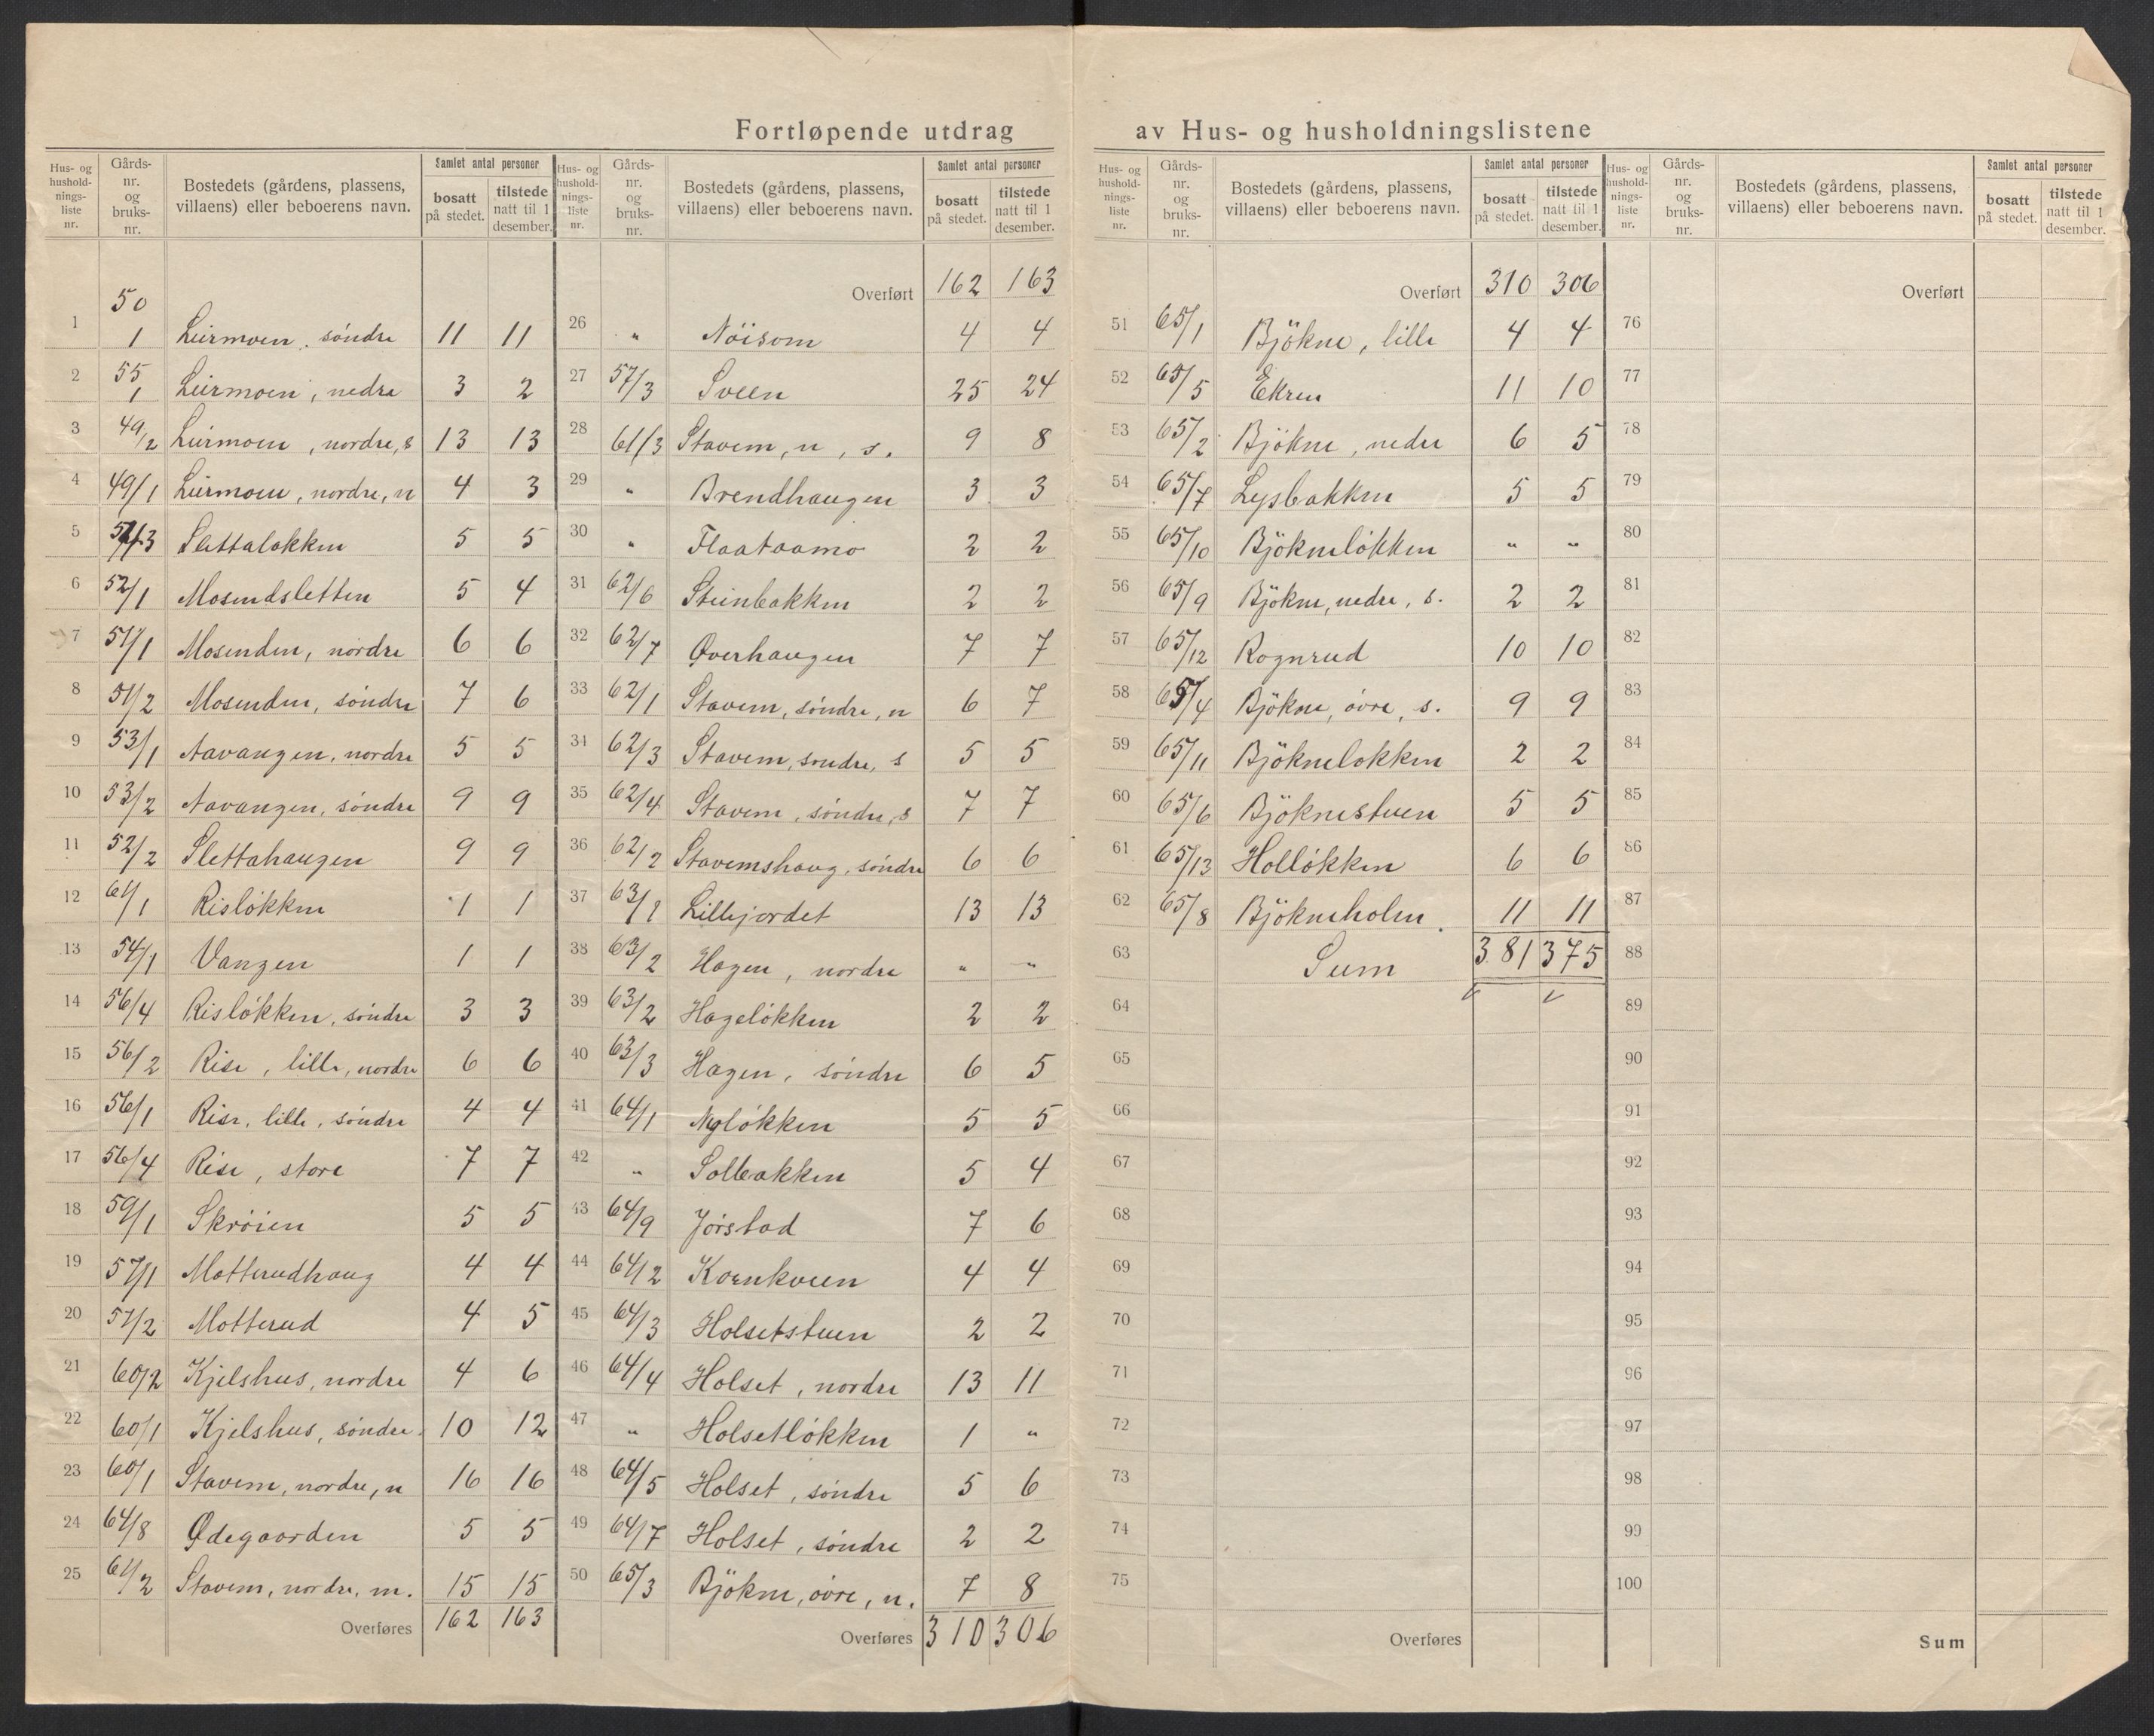 Fortløpende utdrag av Hus- og husholdningslistene
Hus- og hushold-nings-liste nr. | Gårds-nr. og bruks-nr. | Bostedets (gårdens, plassens, villaens) eller beboerens navn. | Samlet antal personer | bosatt på stedet. | tilstede natt til 1 desember.
1 50/1 Leirmoen, söndre 11 11
2 55/1 Leirmoen, nedre 3 2
3 49/2 Leirmoen, nordre, s 13 13
4 49/1 Leirmoen, nordre, n 4 3
5 Slettaløkken 5 5
6 52/1 Mosendsletten 5 4
7 51/1 Mosenden, nordre 6 6
8 51/2 Mosenden, söndre 7 6
9 53/1 Aavangen, nordre 5 5
10 53/2 Aavangen, söndre 9 9
11 52/2 Slettahaugen 9 9
12 61/1 Rislökken 1 1
13 54/1 Vangen 1 1
14 56/4 Rislökken, söndre 3 3
15 56/2 Rise, lille, nordre 6 6
16 56/1 Rise, lille, söndre 4 4
17 56/4 Rise, store 7 7
18 59/1 Skröien 5 5
19 57/1 Motterudhaug 4 4
20 57/2 Motterud 4 5
21 60/2 Kjelshus, nordre 4 6
22 60/1 Kjelshus, söndre 10 12
23 60/1 Stavem, nordre, n 16 16
24 64/8 Ødegaarden 5 5
25 61/2 Stavem, nordre, m. 15 15
Overføres 162 163
Hus- og hushold-nings-liste nr. | Gårds-nr. og bruks-nr. | Bostedets (gårdens, plassens, villaens) eller beboerens navn. | Samlet antal personer | bosatt på stedet. | tilstede natt til 1 desember.
Overført 162 163
26 " Nöisom 4 4
27 57/3 Sveen 25 24
28 61/3 Stavem, n, s. 9 8
29 " Brendhaugen 3 3
30 " Flaataamo 2 2
31 62/6 Steinbakken 2 2
32 62/7 Øverhaugen 7 7
33 62/1 Stavem, söndre, n 6 7
34 62/3 Stavem, söndre, s 5 5
35 62/4 Stavem, söndre, s 7 7
36 62/2 Stavemshaug, söndre 6 6
37 63/1 Lillejordet 13 13
38 63/2 Hagen, nordre " "
39 63/2 Hagelökken 2 2
40 63/3 Hagen, söndre 6 5
41 64/1 Nylökken 5 5
42 " Solbakken 5 4
43 64/9 Jörstad 7 6
44 64/2 Kornkveen 4 4
45 64/3 Holsetstuen 2 2
46 64/4 Holset, nordre 13 11
47 " Holsetlökken 1 "
48 64/5 Holset, söndre 5 6
49 64/7 Holset, söndre 2 2
50 65/3 Bjökne, övre, n. 7 8
Overføres 310 306
Hus- og hushold-nings-liste nr. | Gårds-nr. og bruks-nr. | Bostedets (gårdens, plassens, villaens) eller beboerens navn. | Samlet antal personer | bosatt på stedet. | tilstede natt til 1 desember.
Overført 310 306
51 65/1 Bjökne, lille 4 4
52 65/5 Ekren 11 10
53 65/2 Bjökne, nedre 6 5
54 65/7 Lysbakken 5 5
55 65/10 Bjöknelökken " "
56 65/9 Bjökne, nedre, s. 2 2
57 65/12 Rognrud 10 10
58 65/4 Bjökne, övre, s. 9 9
59 65/11 Bjöknelokken 2 2
60 65/6 Bjöknestuen 5 5
61 65/13 Hollökken 6 6
62 65/8 Bjökneholm 11 11
63 Sum 381 375
64
65
66
67
68
69
70
71
72
73
74
75
Overføres
Hus- og hushold-nings-liste nr. | Gårds-nr. og bruks-nr. | Bostedets (gårdens, plassens, villaens) eller beboerens navn. | Samlet antal personer | bosatt på stedet. | tilstede natt til 1 desember.
Overført
76
77
78
79
80
81
82
83
84
85
86
87
88
89
90
91
92
93
94
95
96
97
98
99
100
Sum